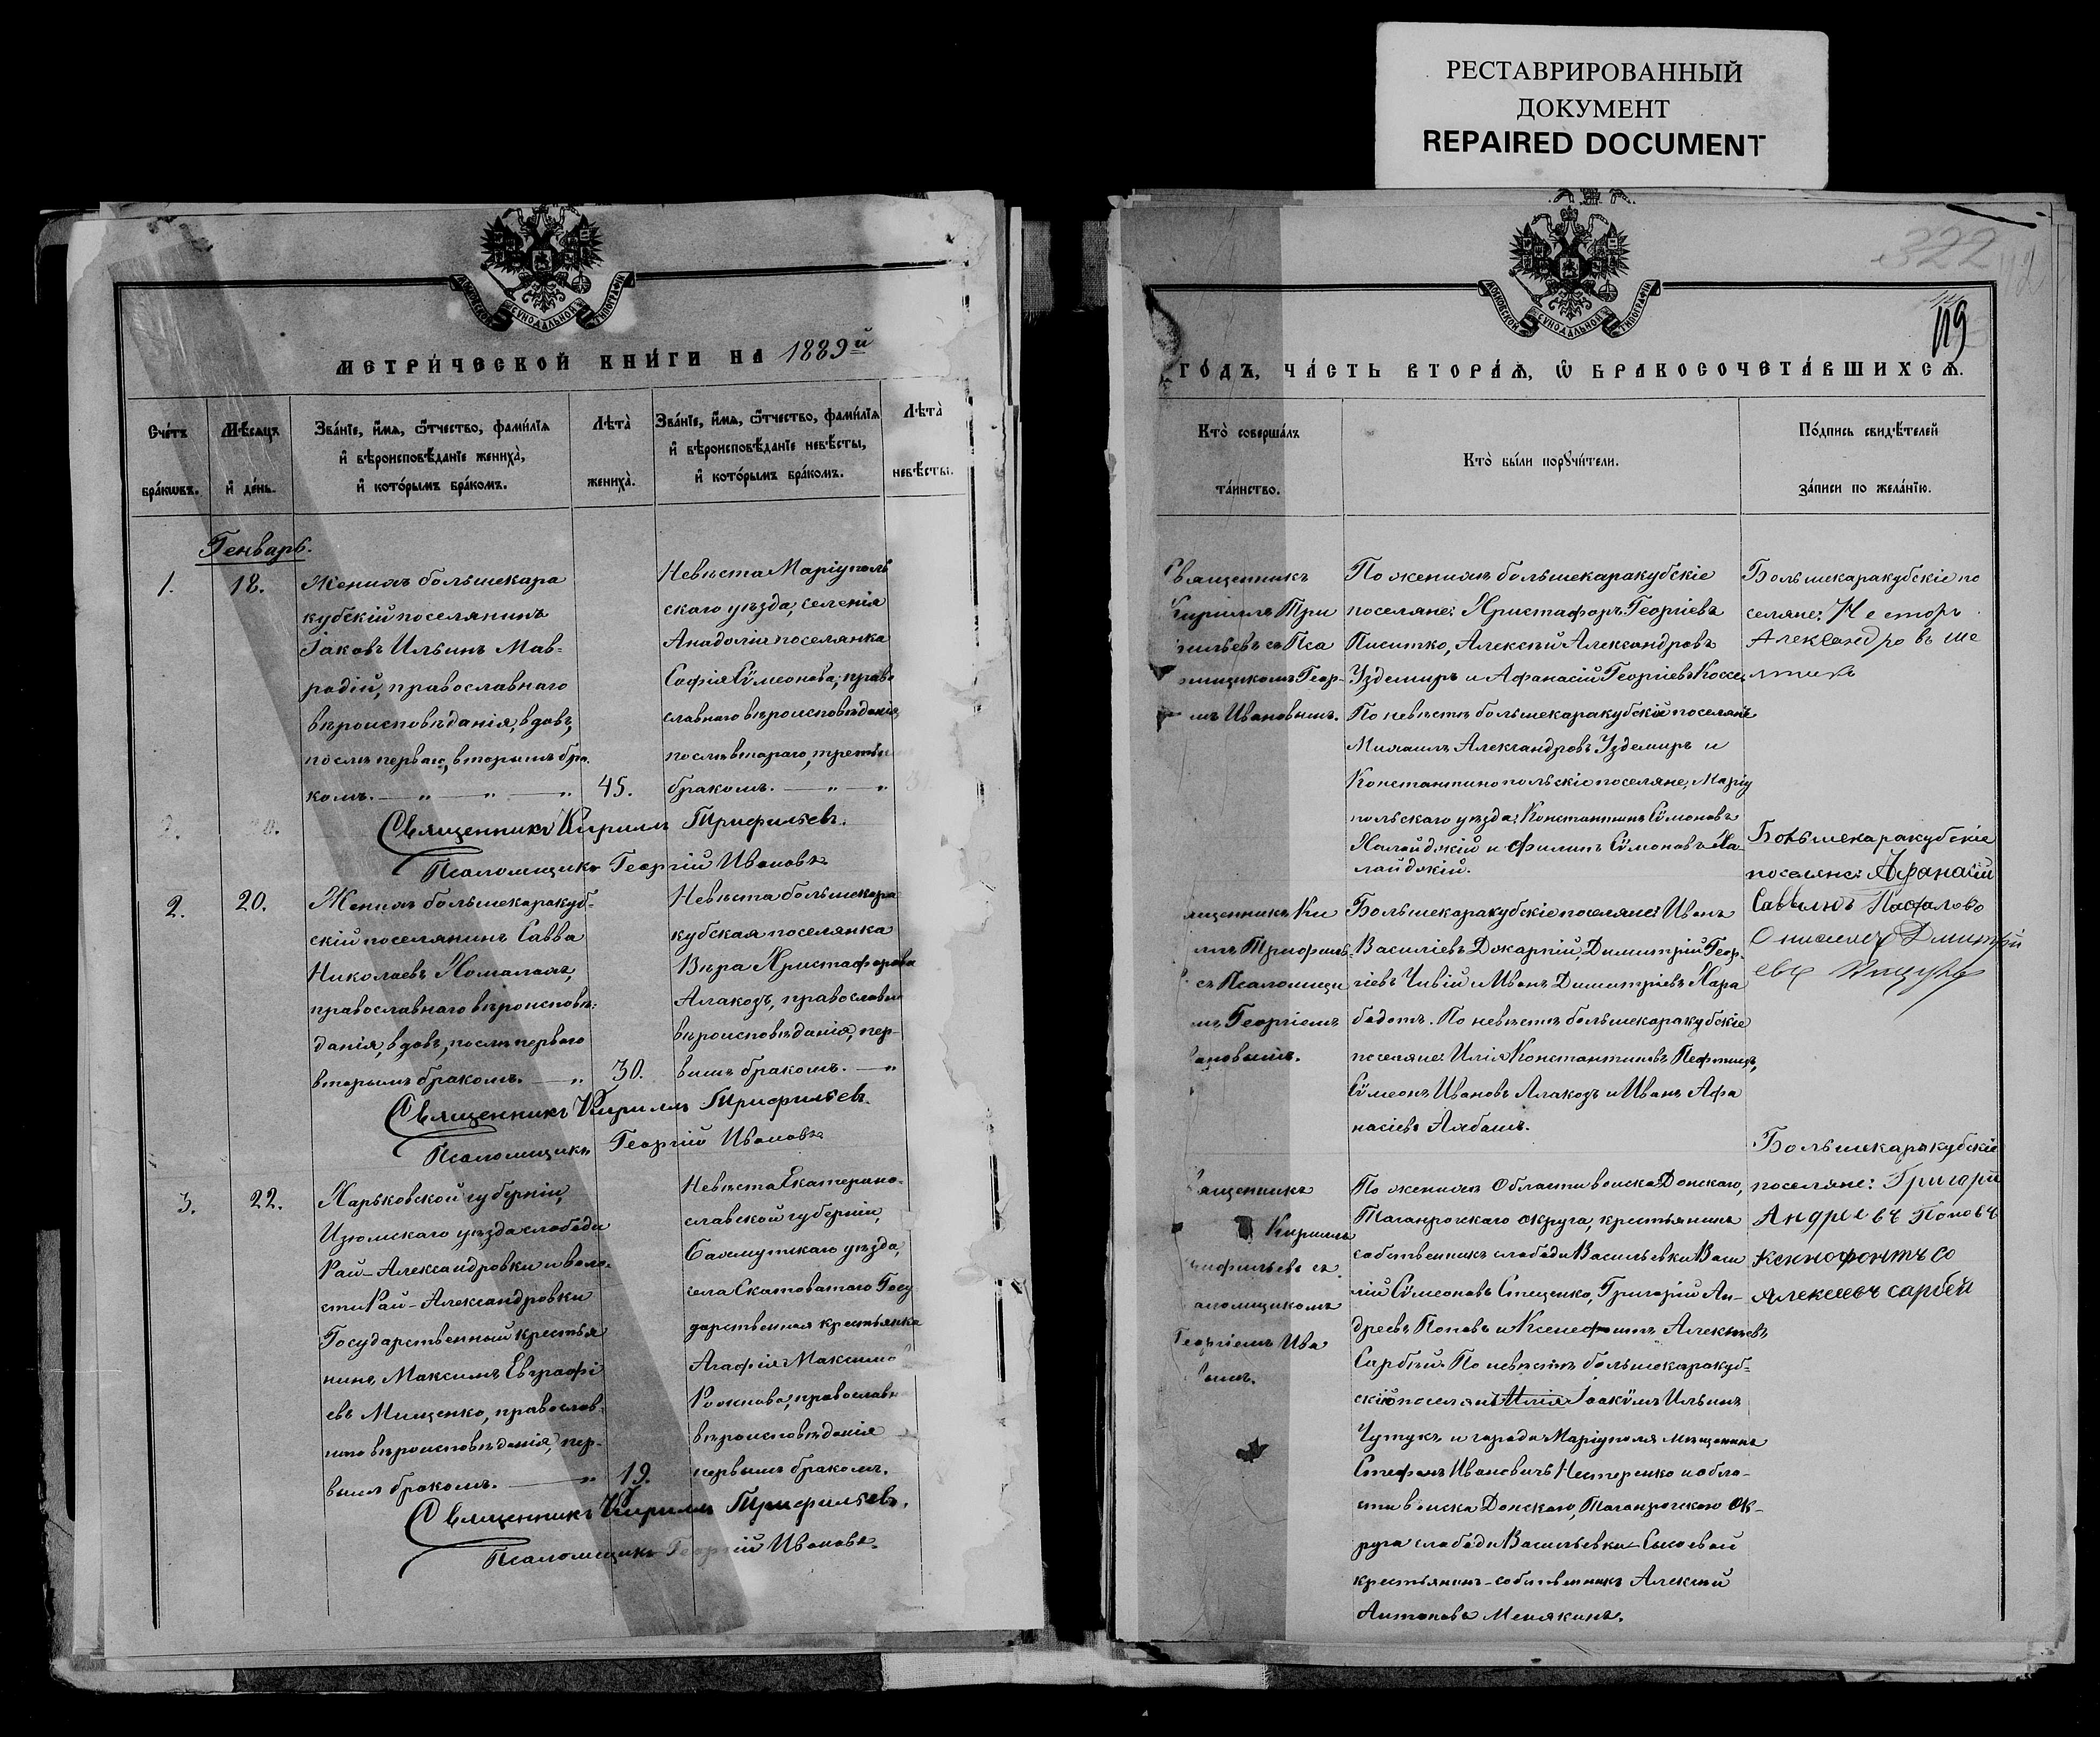 РЕСТАВРИРОВАННЫЙ
ДОКУМЕНТ
REPAIRED DOCUMENT
МОСКОВСКОЙ СУНОДАЛЬНОЙ ТИПОГРАФІИ
МЕТРИ́ЧЕСКОЙ КНИ́ГИ НА 1889й
Сче́тъ бра́кωвъ.
Мѣ́сяцъ и҆ де́нь.
Зва́нїе, и҆́мѧ, ѻ҆́тчество, фами́лїѧ
и҆ вѣроисповѣ́данїе жениха̀,
и҆ кото́рымъ бра́комъ.
Лѣта̀ жениха̀.
Зва́нїе, и҆́мѧ, ѻ҆́тчество, фами́лїѧ
и҆ вѣроисповѣ́данїе невѣ́сты,
и҆ кото́рымъ бра́комъ.
Лѣта̀ невѣ́сты.
Генварь.
1.
18.
Женихъ большекара
кубскій поселянинъ
Іаковъ Ильинъ Мав-
родій, православнаго
вѣроисповѣданія, вдовъ,
послѣ перваго, вторымъ бра
комъ. — „ — „ — „
45.
Невѣста Маріуполь
скаго уѣзда, селенія
Анадоліи поселянка
Софія Сѵмеонова, право
славнаго вѣроисповѣданія,
послѣ втораго, третьи
бракомъ. — „ — „
Священникъ Кириллъ Трифильевъ.
Псаломщикъ Георгій Ивановъ
2.
20.
Женихъ большекаракуб-
скій поселянинъ Савва
Николаевъ Хомалахъ,
православнаго вѣроисповѣ-
данія, вдовъ, послѣ перваго
вторымъ бракомъ. — „
30.
Невѣста большекара
кубская поселянка
Вѣра Христафорова
Алакозъ, православна
вѣроисповѣданія, пер-
вымъ бракомъ. — „
Священникъ Кириллъ Трифильевъ.
Псаломщикъ Георгій Ивановъ
3.
22.
Харьковской губерніи,
Изюмскаго уѣзда слободы
Рай-Александровки и воло-
сти Рай-Александровки
Государственный крестья
нинъ Максимъ Евграфі
евъ Мищенко, православ-
наго вѣроисповѣданія, пер-
вымъ бракомъ. — „
19.
Невѣста Екатерино-
славской губерніи,
Бахмутскаго уѣзда,
села Скотоватаго Госу
дарственная крестьянка
Агафія Максимо
Рожнова, православн
вѣроисповѣданія
первымъ бракомъ.
Священникъ Кириллъ Трифильевъ.
Псаломщикъ Георгій Ивановъ.
322
119
МОСКОВСКОЙ СУНОДАЛЬНОЙ ТИПОГРАФІИ
ГО́ДЪ, ЧА́СТЬ ВТОРА́Ѧ, Ѡ҆ БРАКОСОЧЕТА́ВШИХСѦ.
Кто̀ соверша́лъ та́инство.
Кто̀ бы́ли порꙋчи́тели.
По́дпись свидѣ́телей
за́писи по жела́нїю.
Священникъ
Кириллъ Три
фильевъ съ Пса
омщикомъ Геор-
мъ Ивановымъ.
По женихѣ большекаракубскіе
поселяне: Христафоръ Георгіевъ
Писитко, Алексѣй Александровъ
Уздемиръ и Афанасій Георгіевъ Коссе.
По невѣстѣ большекаракубскіе поселяне
Михаилъ Александровъ Уздемиръ и
Константинопольскіе поселяне, Маріу
польскаго уѣзда: Константинъ Сѵмоновъ
Халайджій и Филипъ Сѵмоновъ Ха
лайджій.
Большекаракубскіе по
селяне: Несторъ
Александровъ ше
лтикъ
ященникъ Ки
лъ Трифиль-
съ Псаломщи
мъ Георгіемъ
вановымъ.
Большекаракубскіе поселяне: Иванъ
Василіевъ Докаргій, Димитрій Геор-
гіевъ Чивій и Иванъ Димитріевъ Хара
бадотъ. По невѣстѣ большекаракубскіе
поселяне: Илія Константиновъ Пефтіицъ,
Сѵмеонъ Ивановъ Алакозъ и Иванъ Афа
насіевъ Албашъ.
Большекаракубскіе
поселяне: Афанасій
Саввичъ Пасалово
Димитрі
евъ
ященникъ
Кириллъ
рифильевъ съ
аломщикомъ
Георгіемъ Ива
вымъ.
По женихѣ Области войска Донскаго,
Таганрогскаго округа, крестьянинъ
собственникъ слободы Васильевки Васи
лій Сѵмеоновъ Стеценко, Григорій Ан-
дреевъ Поповъ и Ксенофонтъ Алексѣевъ
Сарбѣй. По невѣстѣ большекаракуб-
скій поселянъ Илія Іоакимъ Ильинъ
Чутукъ и города Маріуполя мѣщанинъ
Стефанъ Ивановичъ Нестеренко и обла-
сти войска Донскаго, Таганрогскаго ок-
руга слободы Васильевки-Сысоевой
крестьянинъ-собственникъ Алексѣй
Антоновъ Менякинъ.
Большекаракубскіе
поселяне: Григорий
Андреевъ Поповъ
Ксенофонтъ
Алексеевъ Сарбей